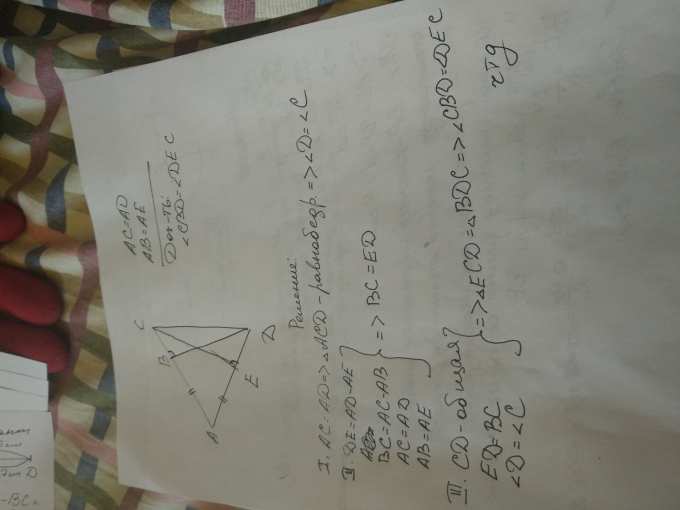 AC=AD
AB=AE
Док-ть:
∠CBD=∠DEC
C
B
A
E
D
Решение:
I. AC=AD=>△ACD-равнобедр.=>∠D=∠C
II. DE=AD-AE
BC=AC-AB
AC=AD
AB=AE
=> BC=ED
III. CD-общая
ED=BC
∠D=∠C
=>△ECD=△BDC=>∠CBD=∠DEC
чтд
D
-BC